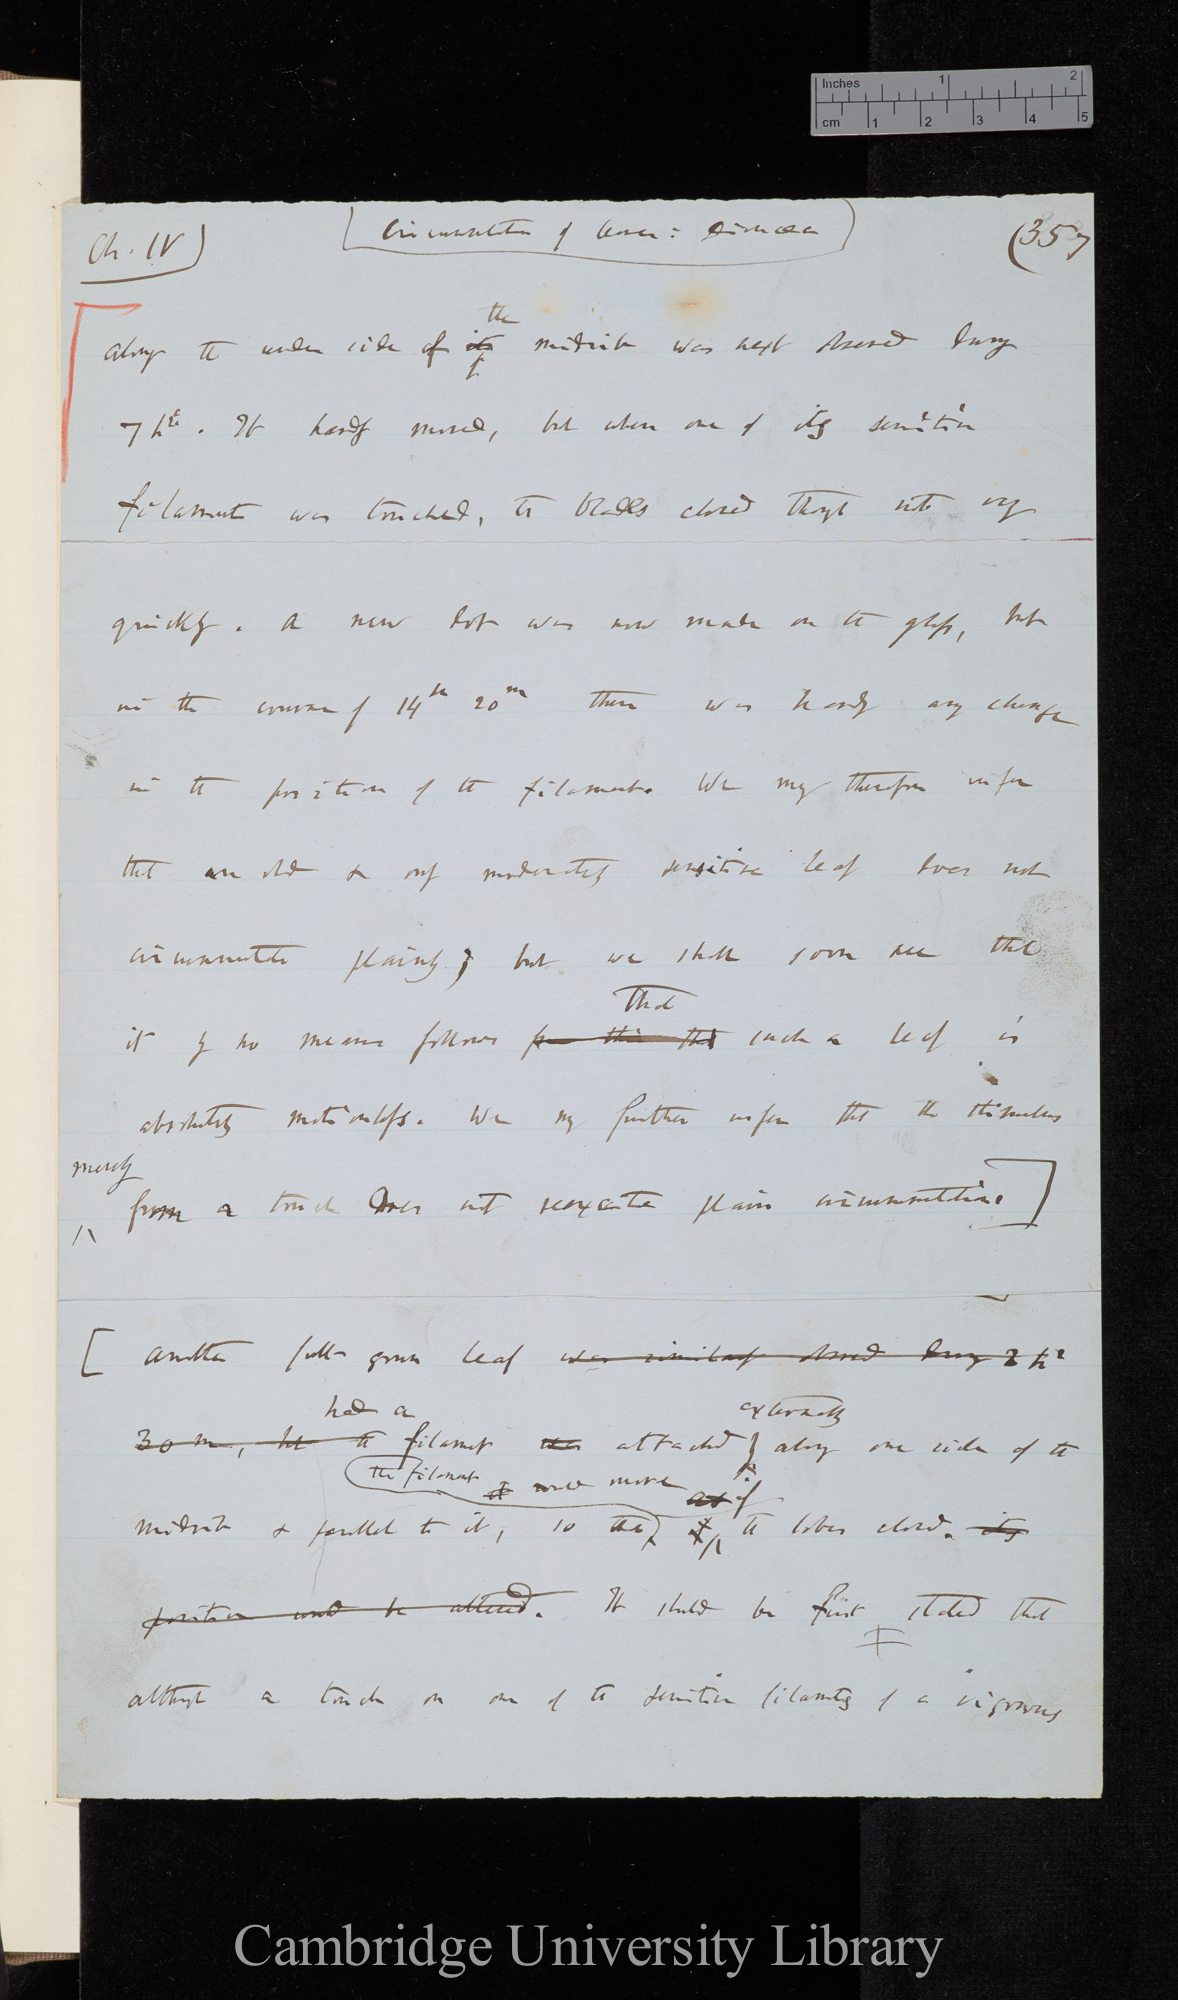 Inches 1 2
cm 1 2 3 4 5
Ch. IV
Circumnutation of leaves: Dionæa
(357
the
along the under side of its midrib was next observed during
7 hrs. It hardly moved, but when one of its sensitive
filaments was touched, the blades closed though not very
quickly. A new dot was now made on the glass, but
in the course of 14h 20m there was hardly any change
in the position of the filament. We may therefore infer
that an old & only moderately sensitive leaf does not
circumnutate plainly; but we shall soon see that
that
it by no means follows from this that such a leaf is
absolutely motionless. We may further infer that the stimulus
merely
from a touch does not re-excite plain circumnutation.]
[Another full-grown leaf was similarly observed during 2 hrs
had a externally
30 m, but the filament was attached along one side of the
the filament it would move as if
midrib & parallel to it, so that if the lobes closed. its
position would be altered. It should be first stated that
although a touch on one of the sensitive filaments of a vigorous
Cambridge University Library